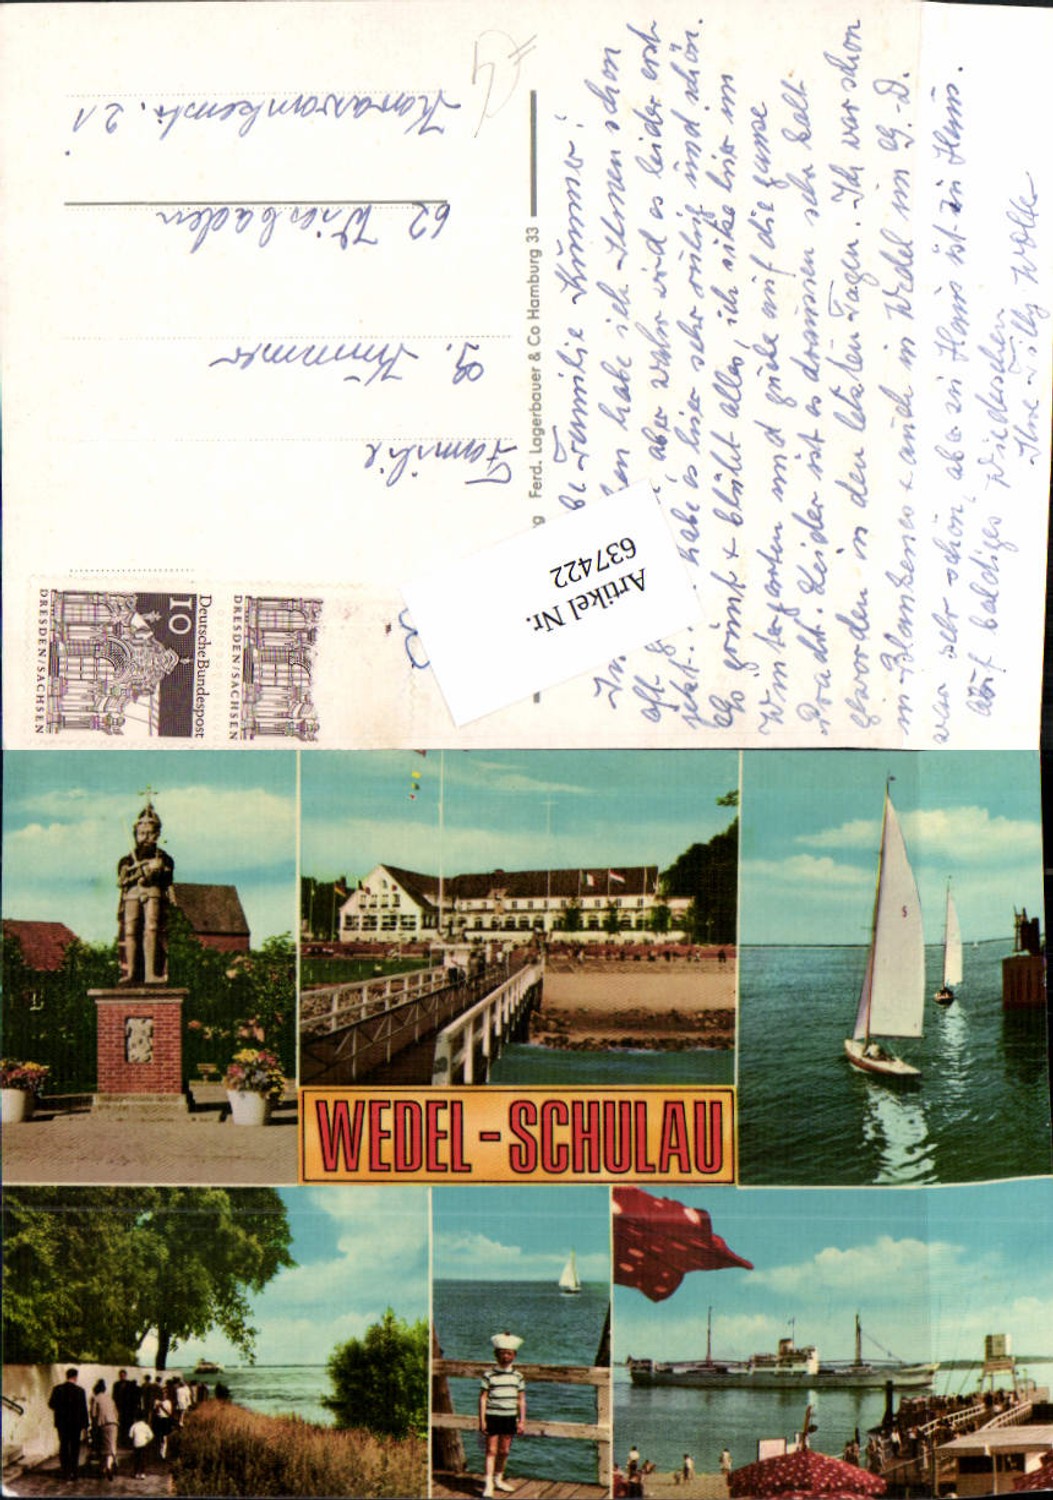 Liebe Familie Kümmer!
habe ich Ihnen schon
oft aber wahr wird es leider erst
jetzt. habe es hier sehr ruhig und schön.
Es grünt + blüht alles, ich sitze hier im
Wintergarten und gucke auf die ganze
Pracht. Leider ist es draussen sehr kalt
geworden in den letzten Tagen. Ich war schon
in Blankenese + auch in Wedel im
war sehr schön, aber zu Haus ist zu Haus.
Auf baldiges Wiedersehen
Ihre Tilly Wolle
Ferd. Lagerbauer & Co Hamburg 33
Familie
G. Kümmer
62 Wiesbaden
Karawankenstr. 21
Artikel Nr.
637422
Deutsche Bundespost
10
DRESDEN/SACHSEN
DRESDEN/SACHSEN
5
WEDEL-SCHULAU